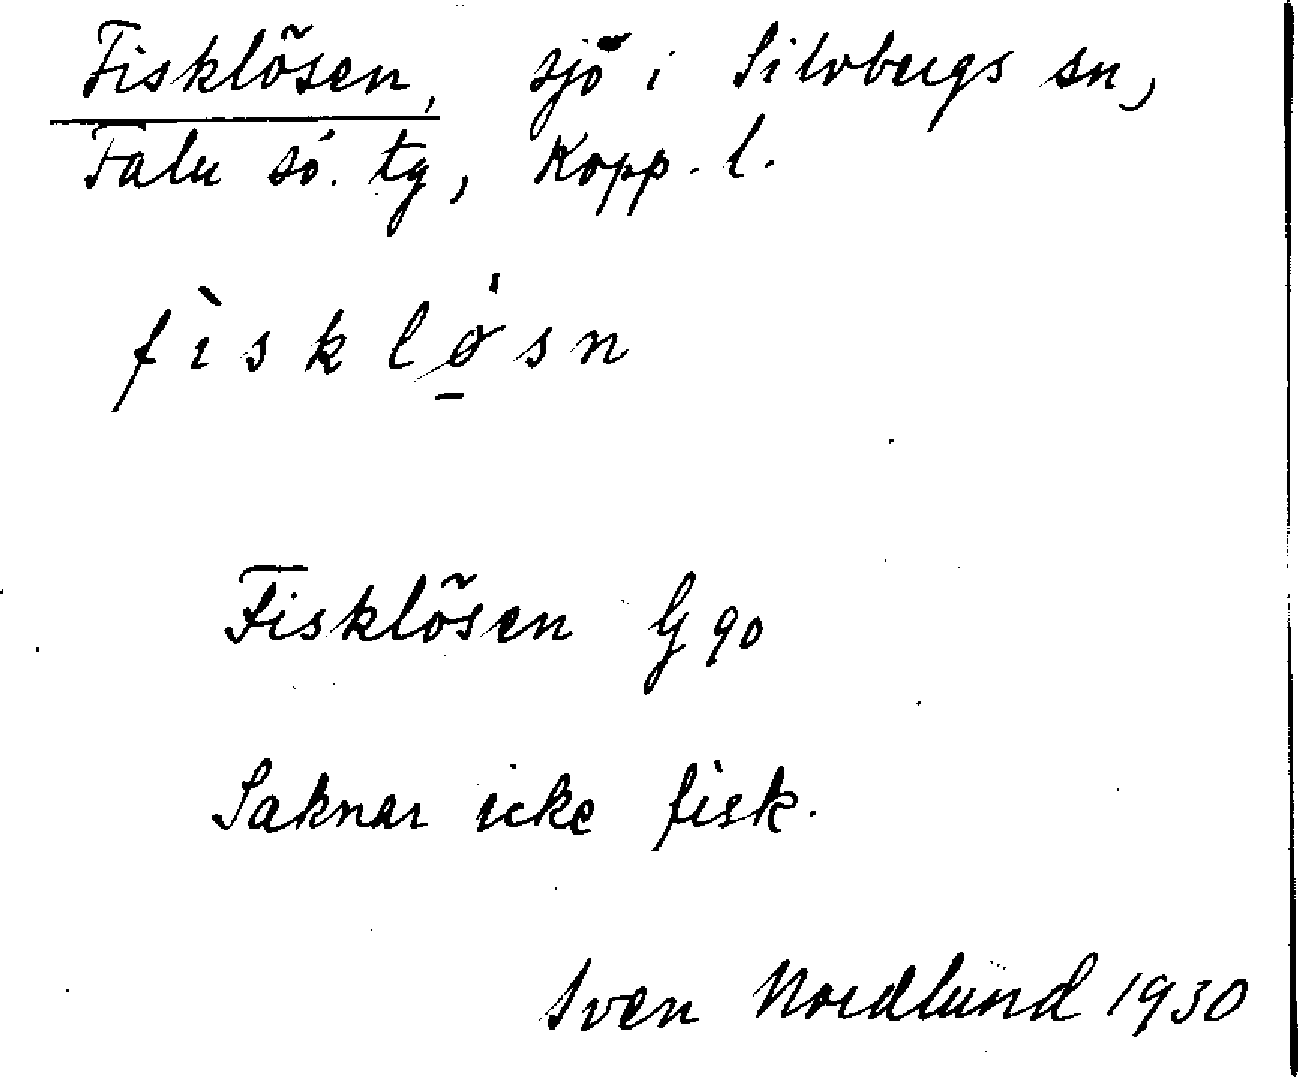 Fisklösen, sjö i Silvbergs sn,
Falu sö. tg, Kopp. l.
fìsklǿ̠sn
Fisklösen G 90
Saknar icke fisk.
Sven Nordlund 1930